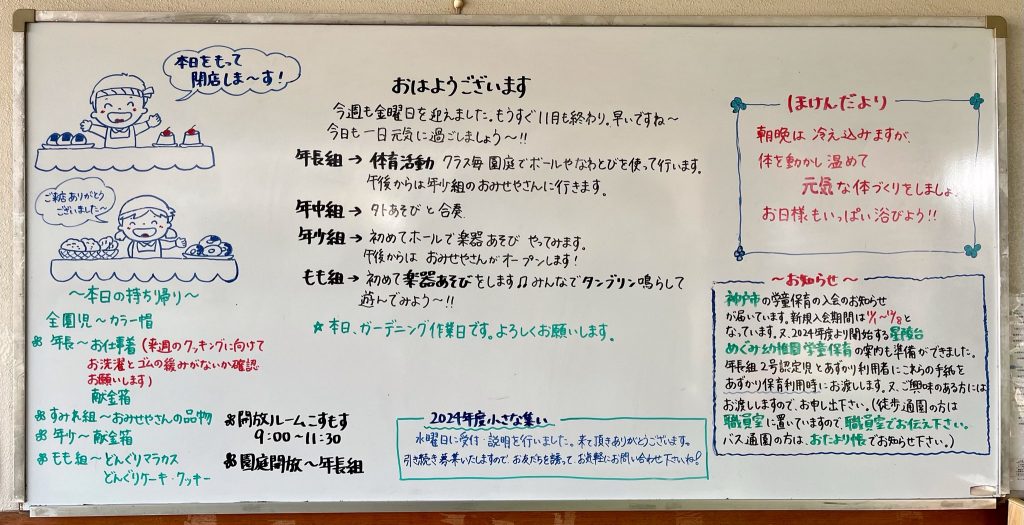 本日をもって
閉店しま〜す！
ご来店ありがとう
ございました〜
〜本日の持ち帰り〜
全園児〜カラー帽
年長〜お仕事着（来週のクッキングに向けて
お洗濯とゴムの緩みがないか確認
お願いします）
献金箱
すみれ組〜おみせやさんの品物
年少〜献金箱
もも組〜どんぐりマラカス
どんぐりケーキ・クッキー
おはようございます
今週も金曜日を迎えました。もうすぐ11月も終わり。早いですね〜
今日も一日元気に過ごしましょう〜!!
年長組→体育活動 クラス毎 園庭でボールやなわとびを使って行います。
午後からは年少組のおみせやさんに行きます。
年中組→外あそびと合奏
年少組→初めてホールで楽器あそび やってみます。
午後からは おみせやさんがオープンします！
もも組→初めて楽器あそびをします♫みんなでタンブリン鳴らして
遊んでみよう〜!!
☆本日、ガーデニング作業日です。よろしくお願いします。
開放ルームこすもす
9:00〜11:30
園庭開放〜年長組
2024年度小さな集い
水曜日に受付・説明を行いました。来て頂きありがとうございます。
引き続き募集いたしますので、お友だちを誘って、お気軽にお問い合わせ下さいね!
ほけんだより
朝晩は 冷え込みますが、
体を動かし温めて
元気な体づくりをしましょ
お日様もいっぱい浴びよう!!
〜お知らせ〜
神戸市の学童保育の入会のお知らせ
が届いています。新規入会期間は
となっています。又、2024年度より開始する星陵台
めぐみ幼稚園学童保育の案内も準備ができました。
年長組2号認定児とあずかり利用者にこれらの手紙を
あずかり保育利用時にお渡しします。又、ご興味のある方には
お渡ししますので、お申し出下さい。（徒歩通園の方は
職員室に置いていますので、職員室でお伝え下さい。
バス通園の方は、おたより帳でお知らせ下さい。）